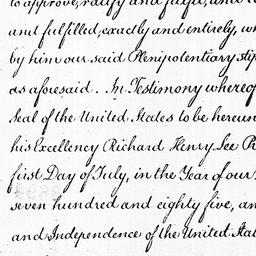 to approve, ratify and fulfil, and
and fulfilled, exactly and entirely, wh
by him our said Plenipotentiary stip
as aforesaid. In Testimony whereof
Seal of the United States to be hereun
his Excellency Richard Henry Lee Pr
first Day of July, in the Year of our
seven hundred and eighty five, an
and Independence of the United Stat